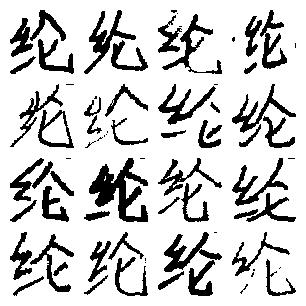 纶纶纶纶
纶纶纶纶
纶纶纶纶
纶纶纶纶